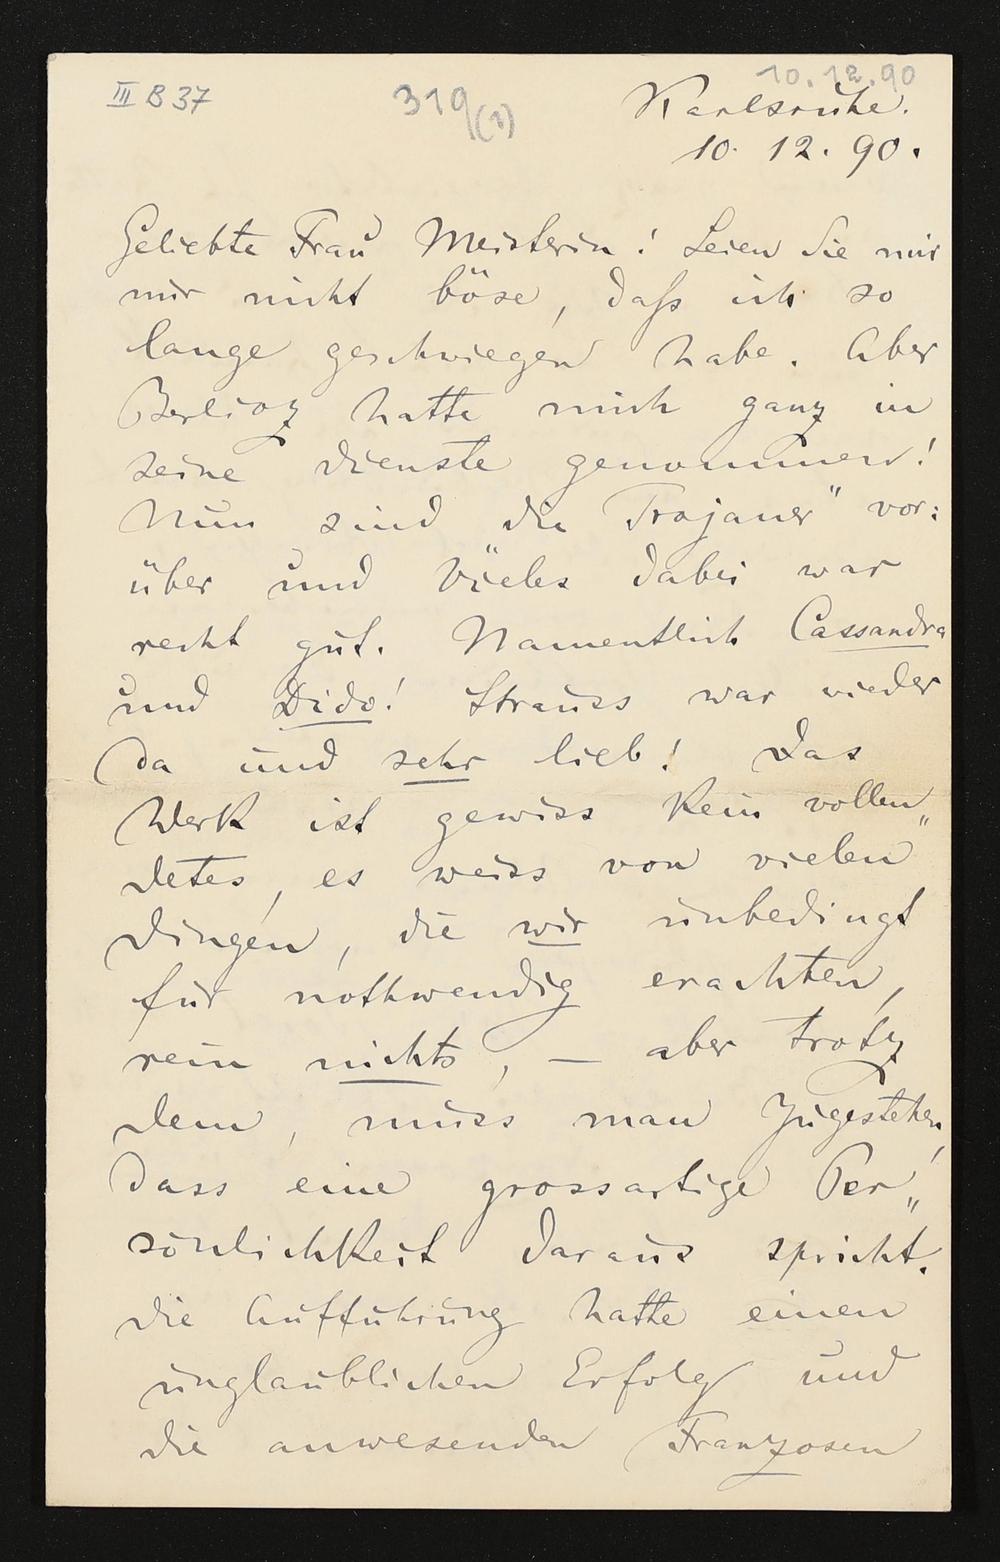 III B 37
319(1)
10.12.90
Karlsruhe.
10. 12. 90.
Geliebte Frau Meisterin! Seien Sie mir
nur nicht böse, daß ich so
lange geschwiegen habe. Aber
Berlioz hatte mich ganz in
seine Dienste genommen!
Nun sind die Trojaner" vor:
über und Vieles dabei war
recht gut. Namentlich Cassandra
und Dido! Strauss war wieder
da und sehr lieb! Das
Werk ist gewiss kein vollen„
detes, es weiss von vielen
Dingen, die wir unbedingt
für nothwendig erachten,
rein nichts, — aber trotz
dem, muss man zugestehen,
dass eine grossartige Per„
sönlichkeit daraus spricht.
Die Aufführung hatte einen
unglaublichen Erfolg und
die anwesenden Franzosen